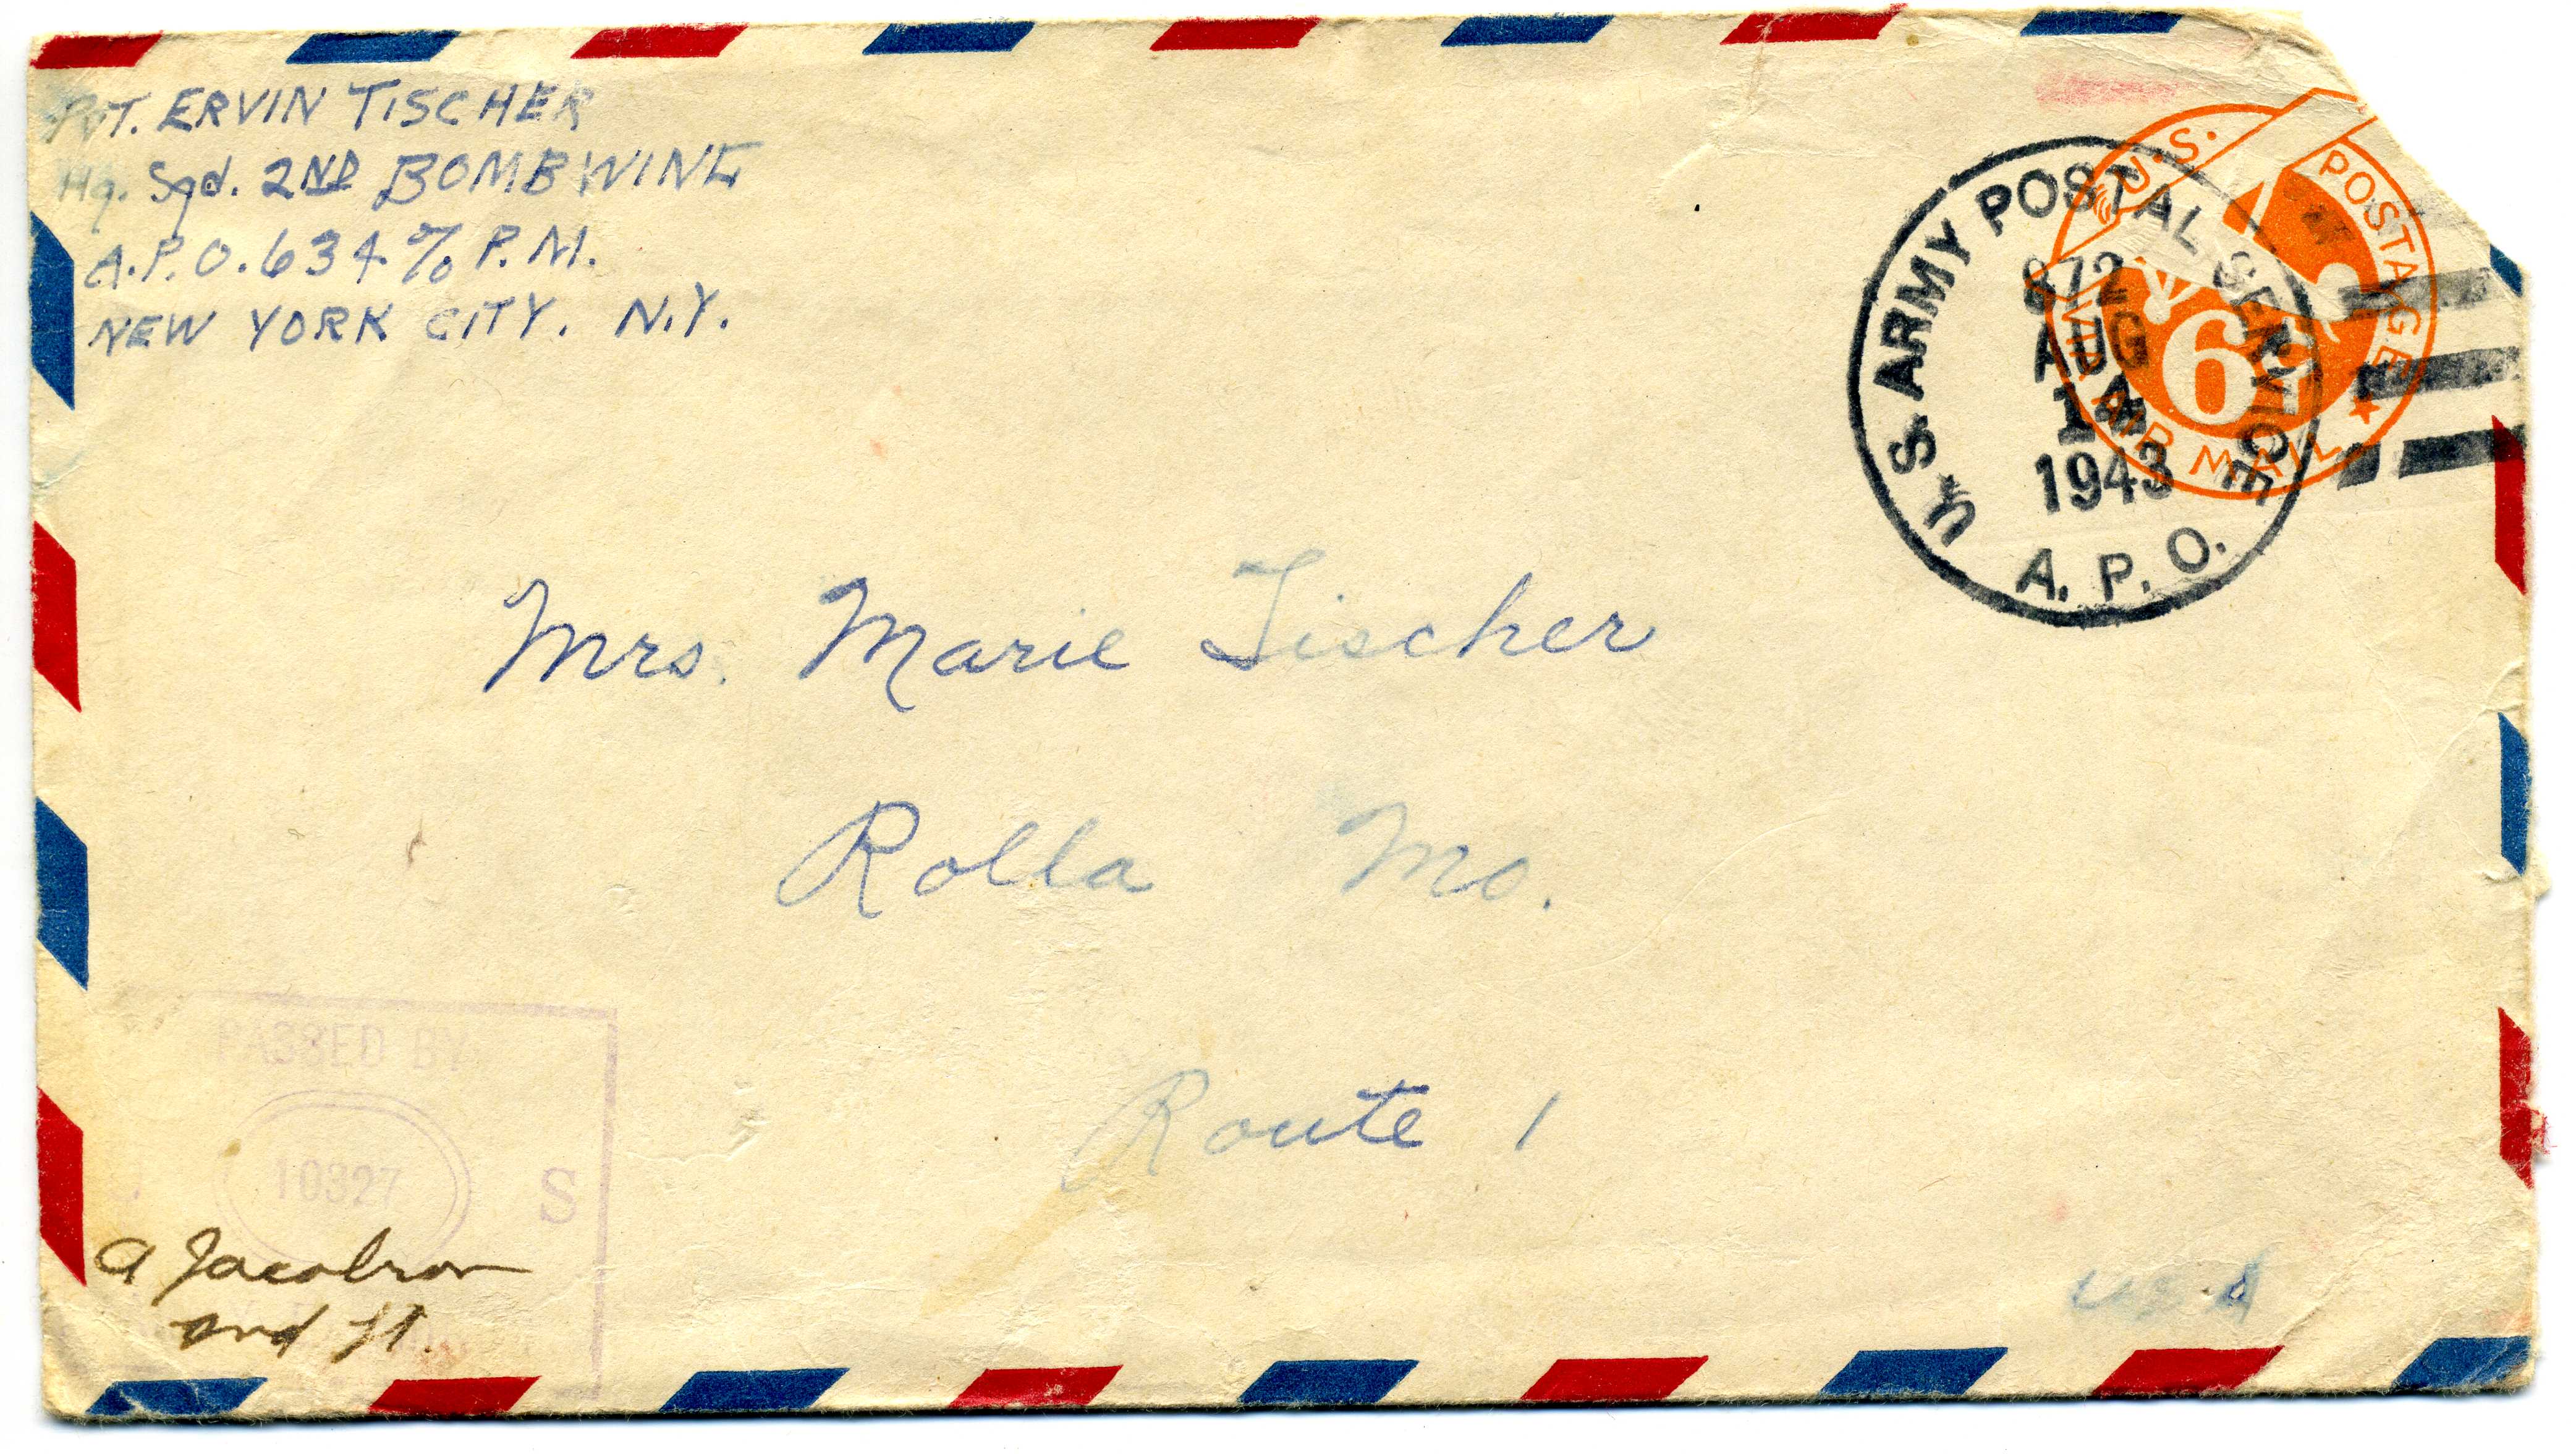 Pvt. ERVIN TISCHER
Hq. Sqd. 2ND BOMB WING
A.P.O. 634 % P.M.
NEW YORK CITY. N.Y.
U.S. POSTAGE
VIA AIR MAIL
6¢
U.S. ARMY POSTAL SERVICE
872
AUG
1943
A.P.O.
Mrs. Marie Tischer
Rolla Mo.
Route 1
U.S.A
PASSED BY
10327
S
A Jacobson
2nd Lt.